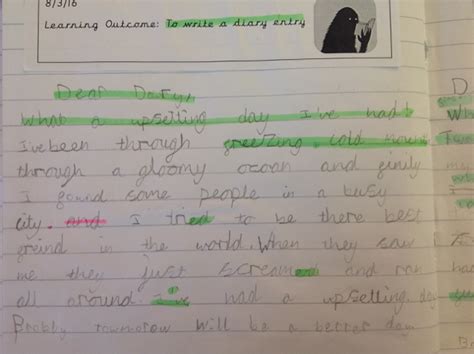 8/3/16
Learning Outcome: To write a diary entry
Dear Dairy,
What a upsetting day I've had!
I've been through freezing cold
through a gloomy ocean and finly
I found some people in a busy
city. and I tried to be there best
freind in the world. When they saw
me they just screamed and ran
all around. I've had a upsetting day
Probbly tommorow will be a better day